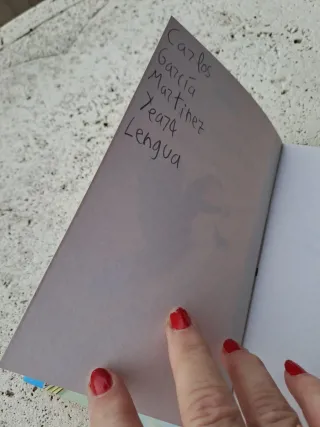 Carlos
García
Martinez
Lengua